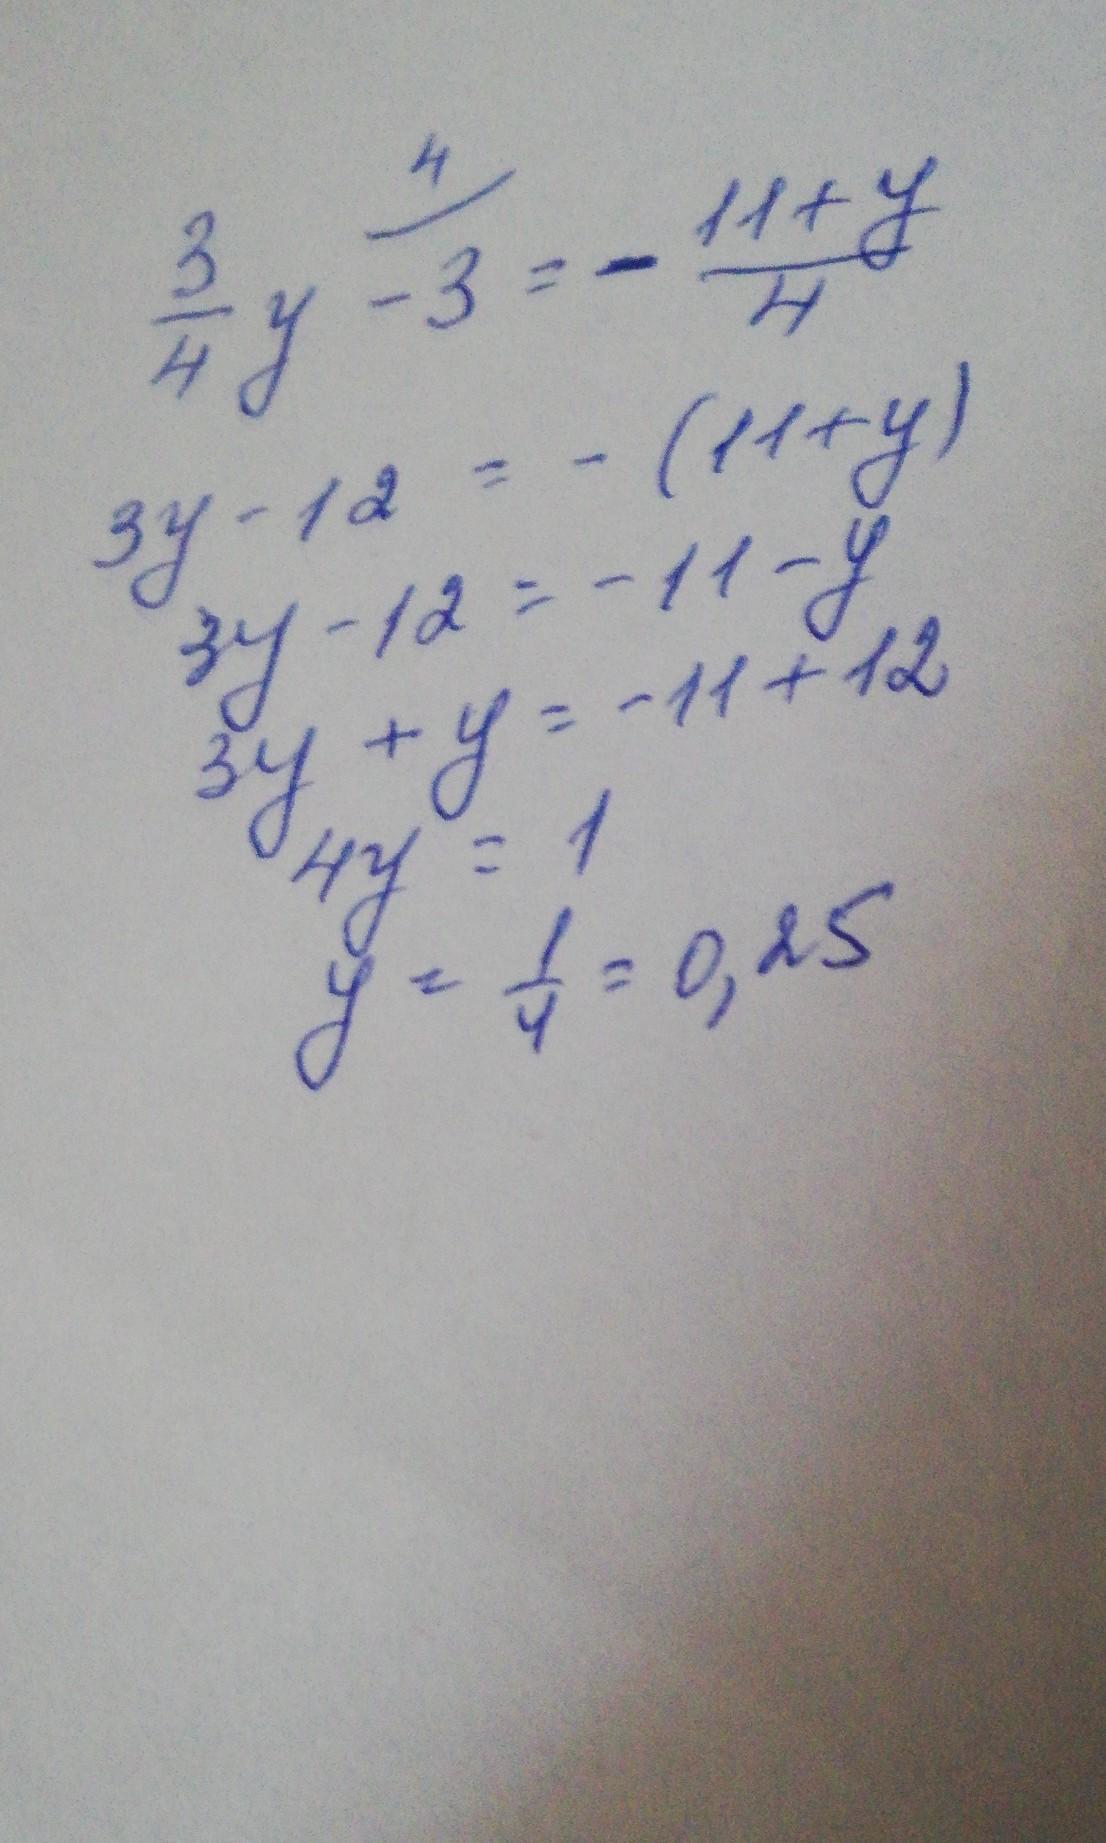 3/4 y - 3 4/ = - (11+y)/4
3y - 12 = - (11+y)
3y - 12 = - 11 - y
3y + y = - 11 + 12
4y = 1
y = 1/4 = 0,25